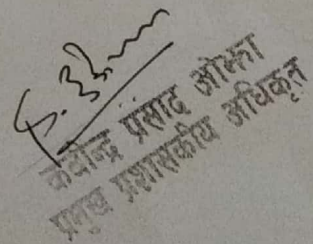 कवीन्द्र प्रसाद ओझा
प्रमुख प्रशासकीय अधिकृत